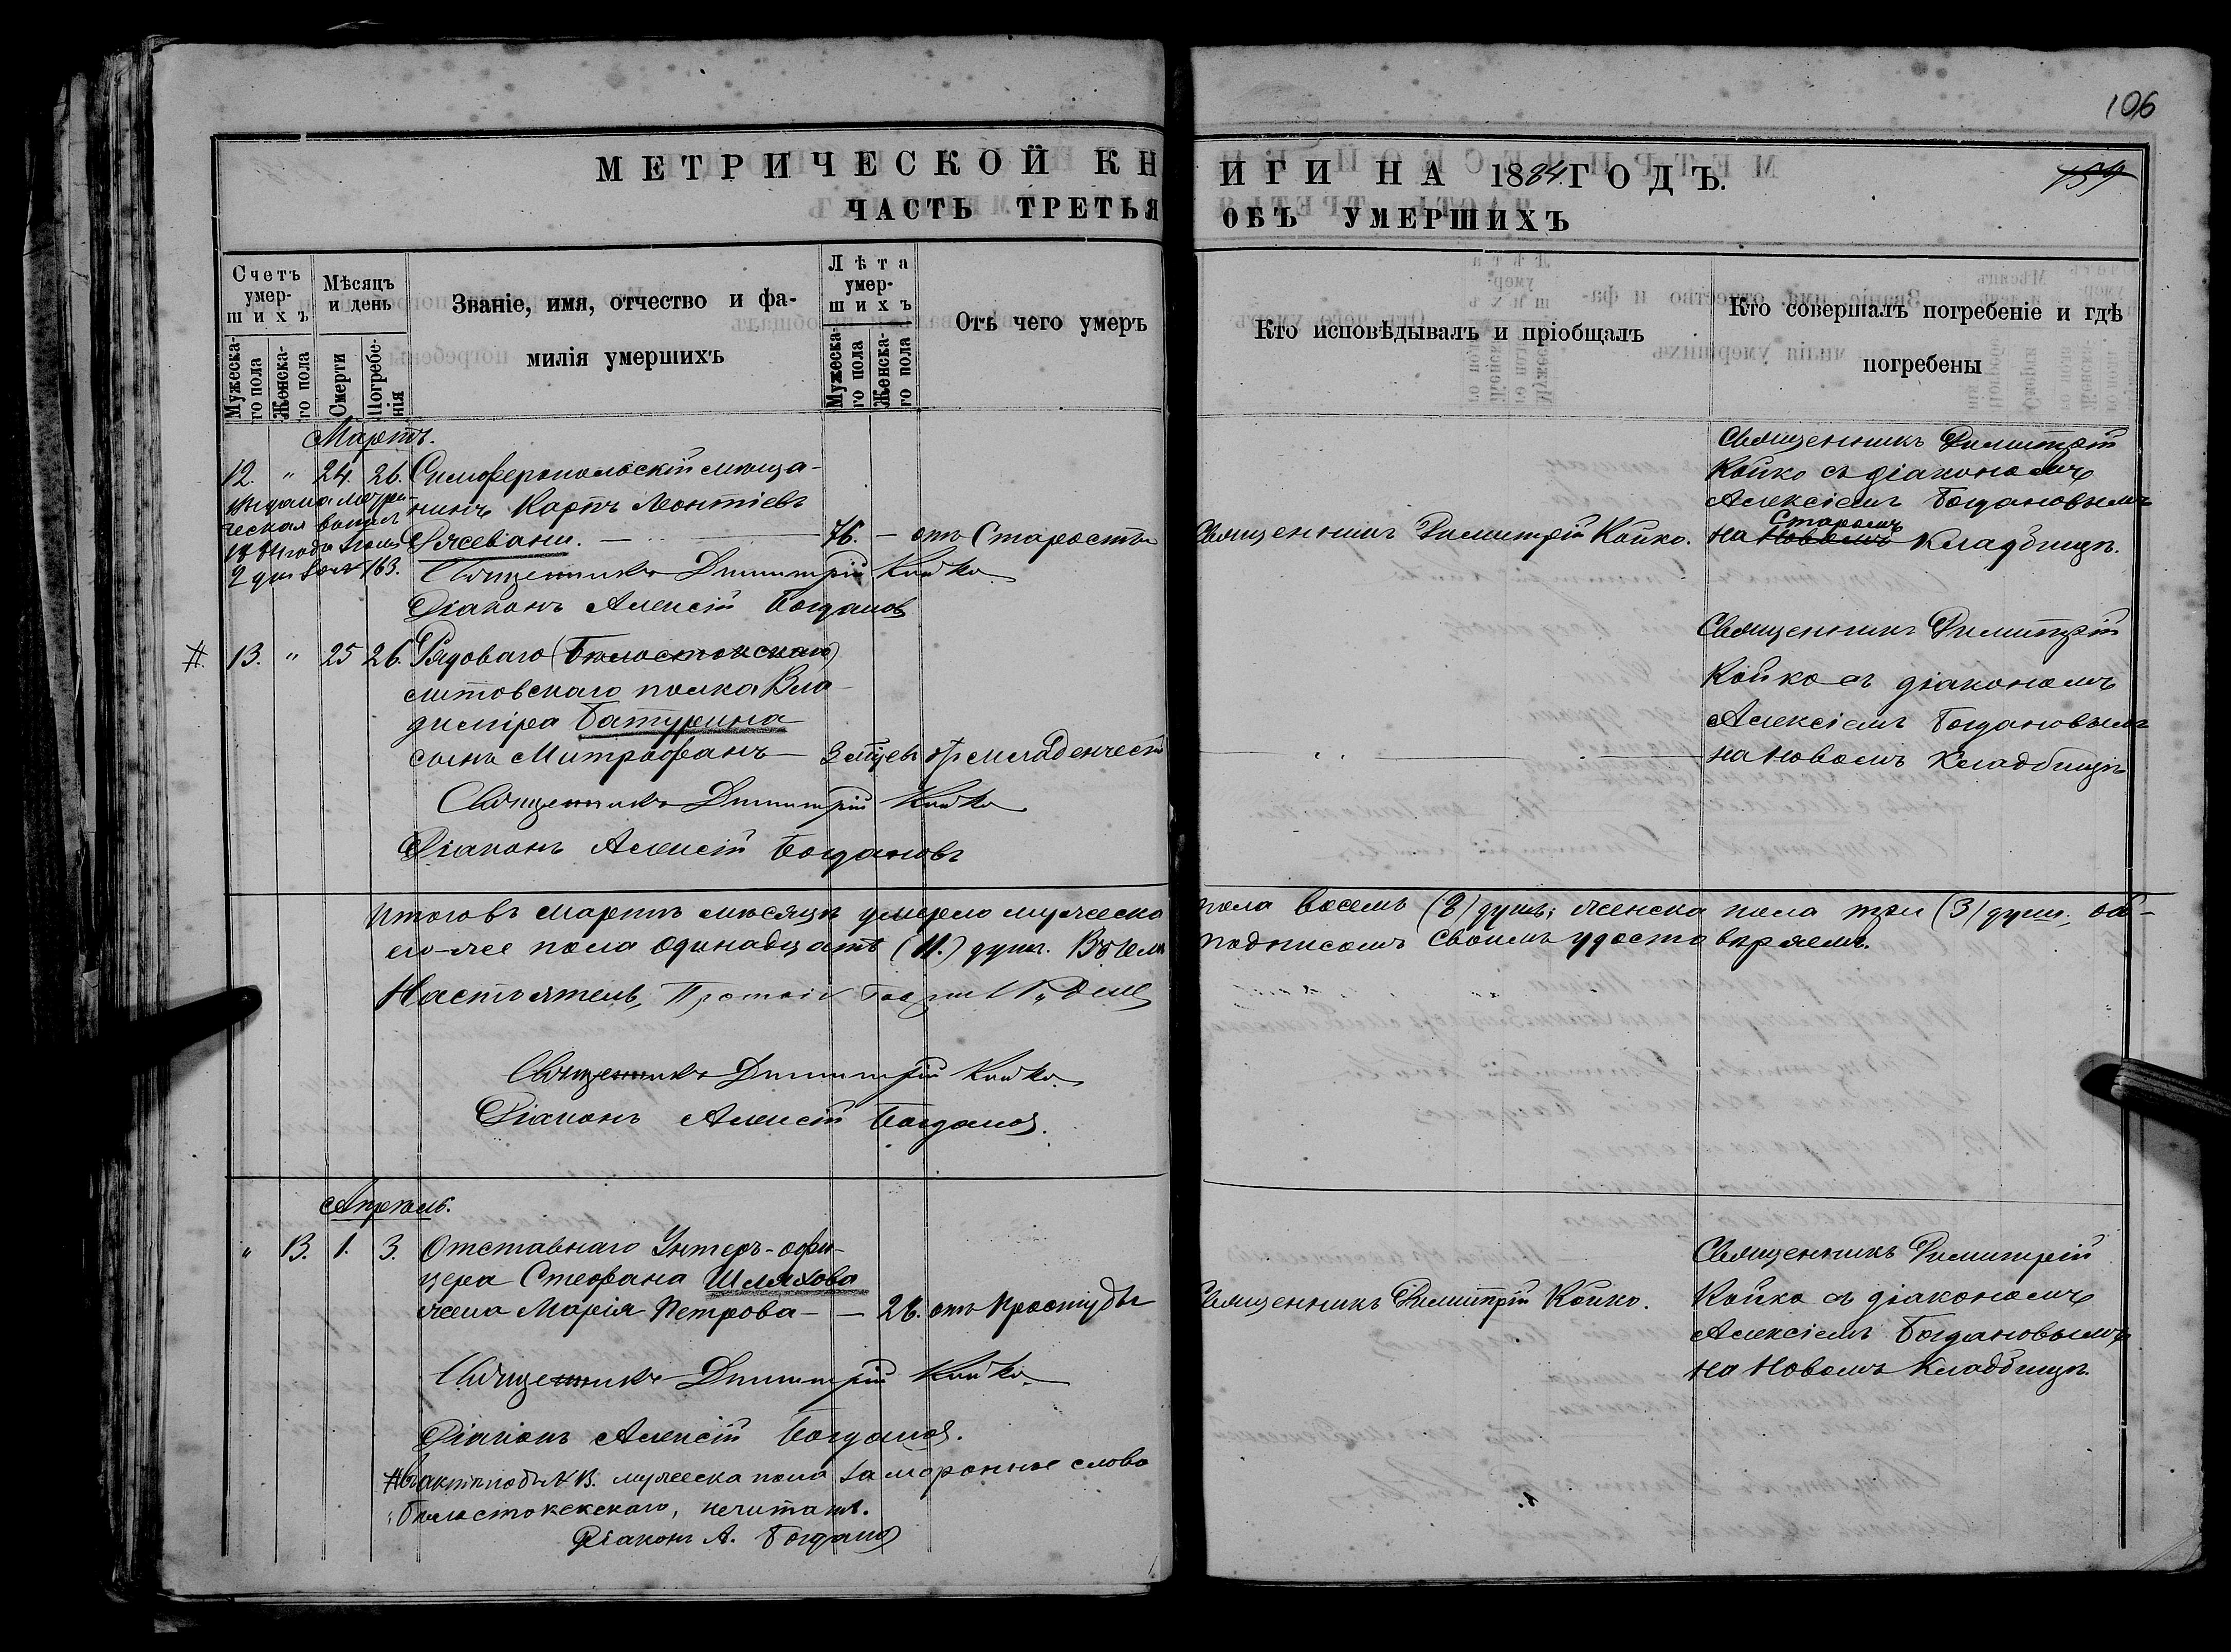 106
МЕТРИЧЕСКОЙ КНИГИ НА 1884 ГОДЪ.
159
ЧАСТЬ ТРЕТЬЯ ОБЪ УМЕРШИХЪ
Счетъ умершихъ
Мужескаго пола
Женскаго пола
Мѣсяцъ и день
Смерти
Погребенія
Званіе, имя, отчество и фамилія умершихъ
Лѣта умершихъ
Мужескаго пола
Женскаго пола
Отъ чего умеръ
Кто исповѣдывалъ и пріобщалъ
Кто совершалъ погребеніе и гдѣ погребены
Мартъ.
12. " 24. 26. Симферопольскій мѣща-
нинъ Карпъ Леонтіевъ
Ржевани. — 76. — отъ Старости
Священникъ Димитрій Койко.
Священникъ Димитрій
Койко съ діакономъ
Алексіемъ Богдановымъ
Старомъ
на Новомъ Кладбищѣ.
2 дня за № 163.
Священникъ Димитрій Койко
Діаконъ Алексій Богданов
# 13. " 25 26. Рядоваго (Бѣлостокскаго)
Литовскаго полка Вла-
диміра Батурина
сынъ Митрофанъ — 3 мѣсцевъ отъ младенчест
Священникъ Димитрій
Койко съ діакономъ
Алексіемъ Богдановымъ
на Новомъ Кладбищѣ
Священникъ Димитрій Койко
Діаконъ Алексій Богдановъ
Итого въ мартѣ мѣсяцѣ умерло мужеска пола восемь (8) душъ; женска пола три (3) душ. об-
его-же пола одинадцать (11.) душъ. Въ чемъ подписомъ своимъ удостовѣряемъ.
Настоятель,
Священникъ Димитрій Койко
Діаконъ Алексій Богданов.
Апрѣль.
" 13. 1. 3. Отставнаго Унтеръ-офи-
цера Стефана Шляхова
жена Марія Петрова — — 26. отъ простуды
Священникъ Димитрій Койко.
Священникъ Димитрій
Койко съ діакономъ
Алексіемъ Богдановымъ
на Новомъ Кладбищѣ.
Священникъ Димитрій Койко
Діаконъ Алексій Богданов.
# въ актѣ подъ № 13. мужеска пола замаранное слово
Бѣлостокскаго, нечитать.
Діаконъ А. Богданов